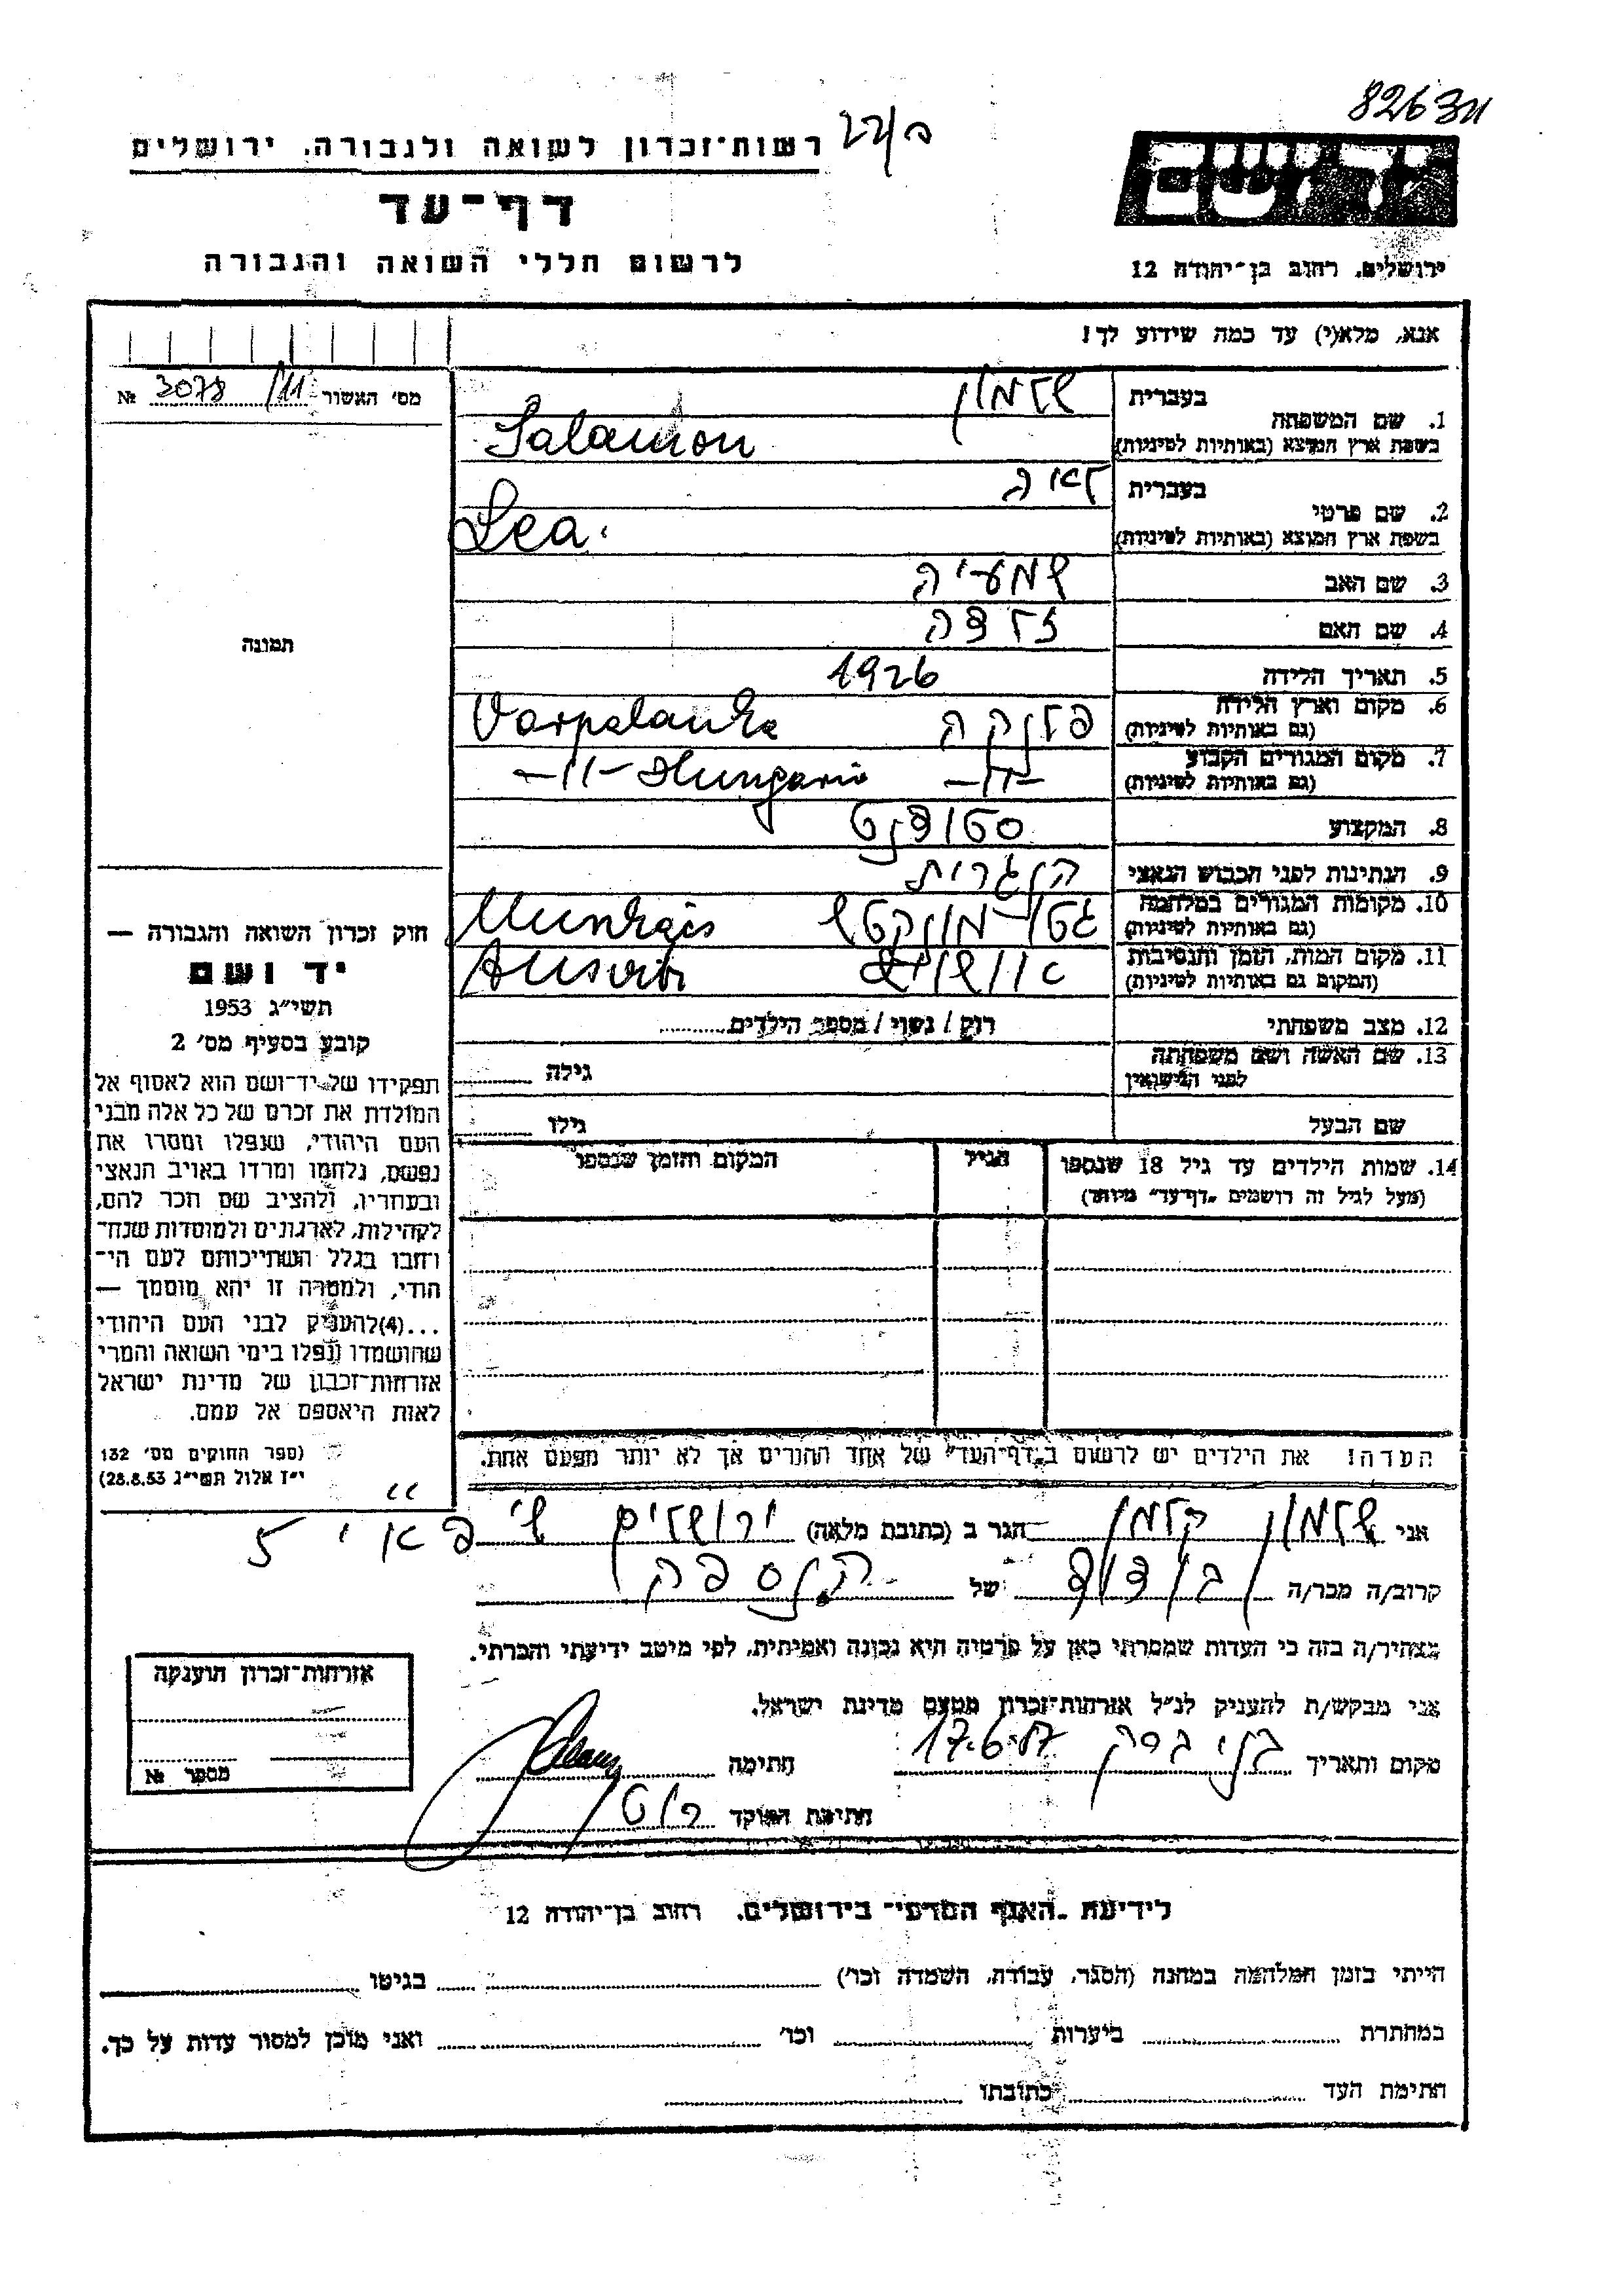 82631
רשות־זכרון לשואה ולגבורה, ירושלים
יד ושם
דף־עד
לרשום חללי השואה והגבורה
ירושלים, רחוב בן־יהודה 12
אנא, מלא(י) עד כמה שידוע לך!
מס' האשור 3078/11 №
בעברית שלמון
1. שם המשפחה
בשפת ארץ המוצא (באותיות לטיניות) Salamon
בעברית לאה
2. שם פרטי
בשפת ארץ המוצא (באותיות לטיניות) Lea
3. שם האב שמעיה
4. שם האם זלדה
תמונה
5. תאריך הלידה 1926
6. מקום וארץ הלידה פלנקה Varpalanka
(גם באותיות לטיניות)
7. מקום המגורים הקבוע -"- -"- Hungaria
(גם באותיות לטיניות)
8. המקצוע סטודנט
9. הנתינות לפני הכבוש הנאצי הונגרית
10. מקומות המגורים במלחמה גטו-מונקטש Munkács
(גם באותיות לטיניות)
11. מקום המות, הזמן והנסיבות אושויץ
(המקום גם באותיות לטיניות)
12. מצב משפחתי רוק / נשוי / מספר הילדים
13. שם האשה ושם משפחתה
לפני הנישואין גילה
שם הבעל גילו
14. שמות הילדים עד גיל 18 שנספו הגיל המקום והזמן שנספו
(מעל לגיל זה רושמים "דף־עד" מיוחד)
חוק זכרון השואה והגבורה —
יד ושם
תשי"ג 1953
קובע בסעיף מס' 2
תפקידו של יד־ושם הוא לאסוף אל
המולדת את זכרם של כל אלה מבני
העם היהודי, שנפלו ומסרו את
נפשם, נלחמו ומרדו באויב הנאצי
ובעוזריו, ולהציב שם וזכר להם,
לקהילות, לארגונים ולמוסדות שנח־
רחבו בגלל השתייכותם לעם הי־
הודי, ולמטרה זו יהא מוסמך —
...(4)להעניק לבני העם היהודי
שהושמדו ונפלו בימי השואה והמרי
אזרחות־זכרון של מדינת ישראל
לאות היאספם אל עמם.
(ספר החוקים מס' 132
י"ז אלול תשי"ג 28.8.53)
הערה! את הילדים יש לרשום ב"דף־העד" של אחד ההורים אך לא יותר מפעם אחת.
אני שלמון קלמן הגר ב (כתובת מלאה) ירושלים
קרוב/ה מכר/ה בן דוד של הנספה
מצהיר/ה בזה כי העדות שמסרתי כאן על פרטיה היא נכונה ואמיתית, לפי מיטב ידיעתי והכרתי.
אני מבקש/ת להעניק לנ"ל אזרחות־זכרון מטעם מדינת ישראל.
מקום ותאריך בני ברק 17.6.57 חתימה
חתימת הפוקד
אזרחות־זכרון הוענקה
מספר №
לידיעת "האגף המדעי" בירושלים, רחוב בן־יהודה 12
הייתי בזמן המלחמה במחנה (הסגר, עבודה, השמדה וכו') בגיטו
במחתרת ביערות וכו' ואני מוכן למסור עדות על כך.
חתימת העד כתובתו